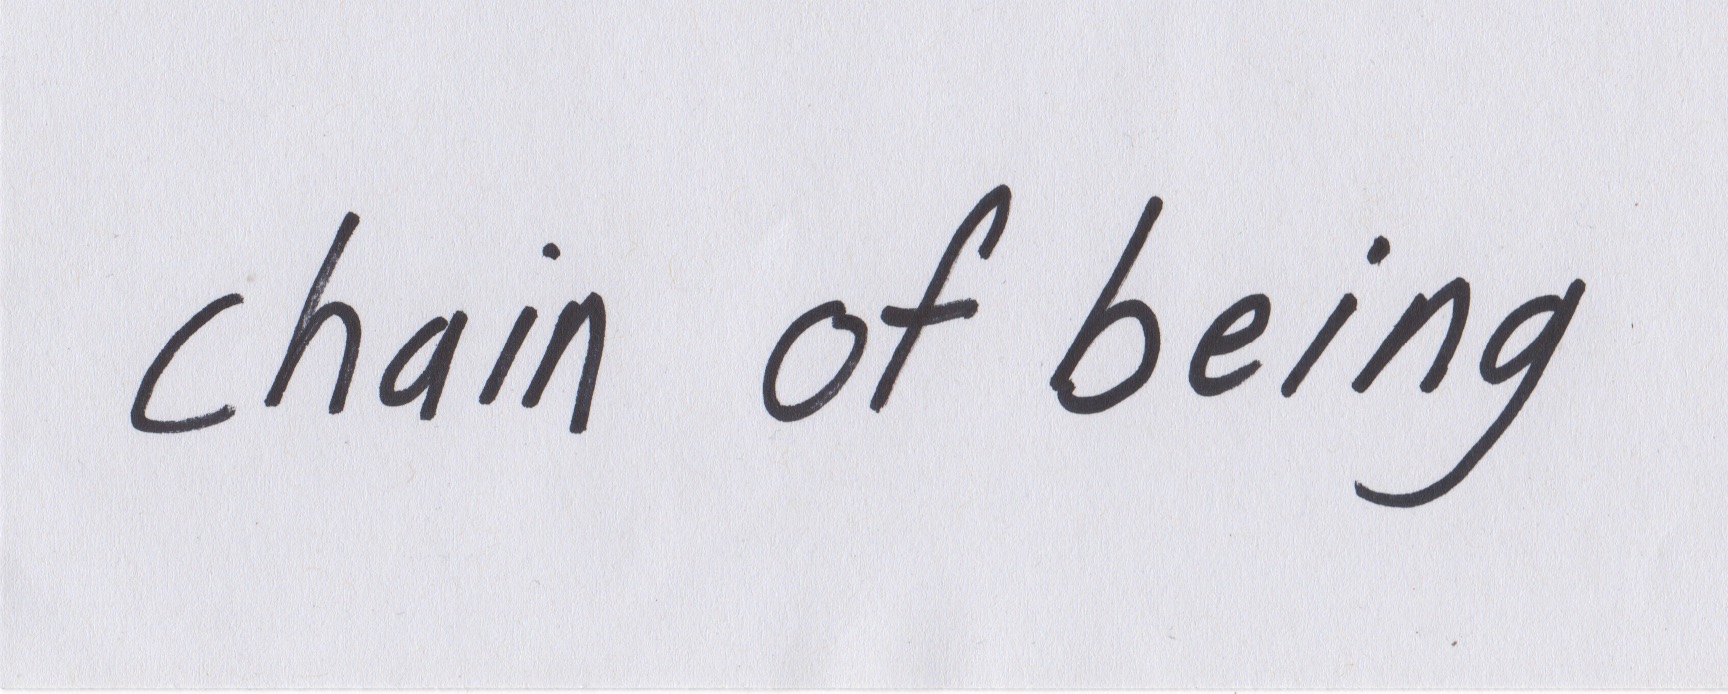 chain of being